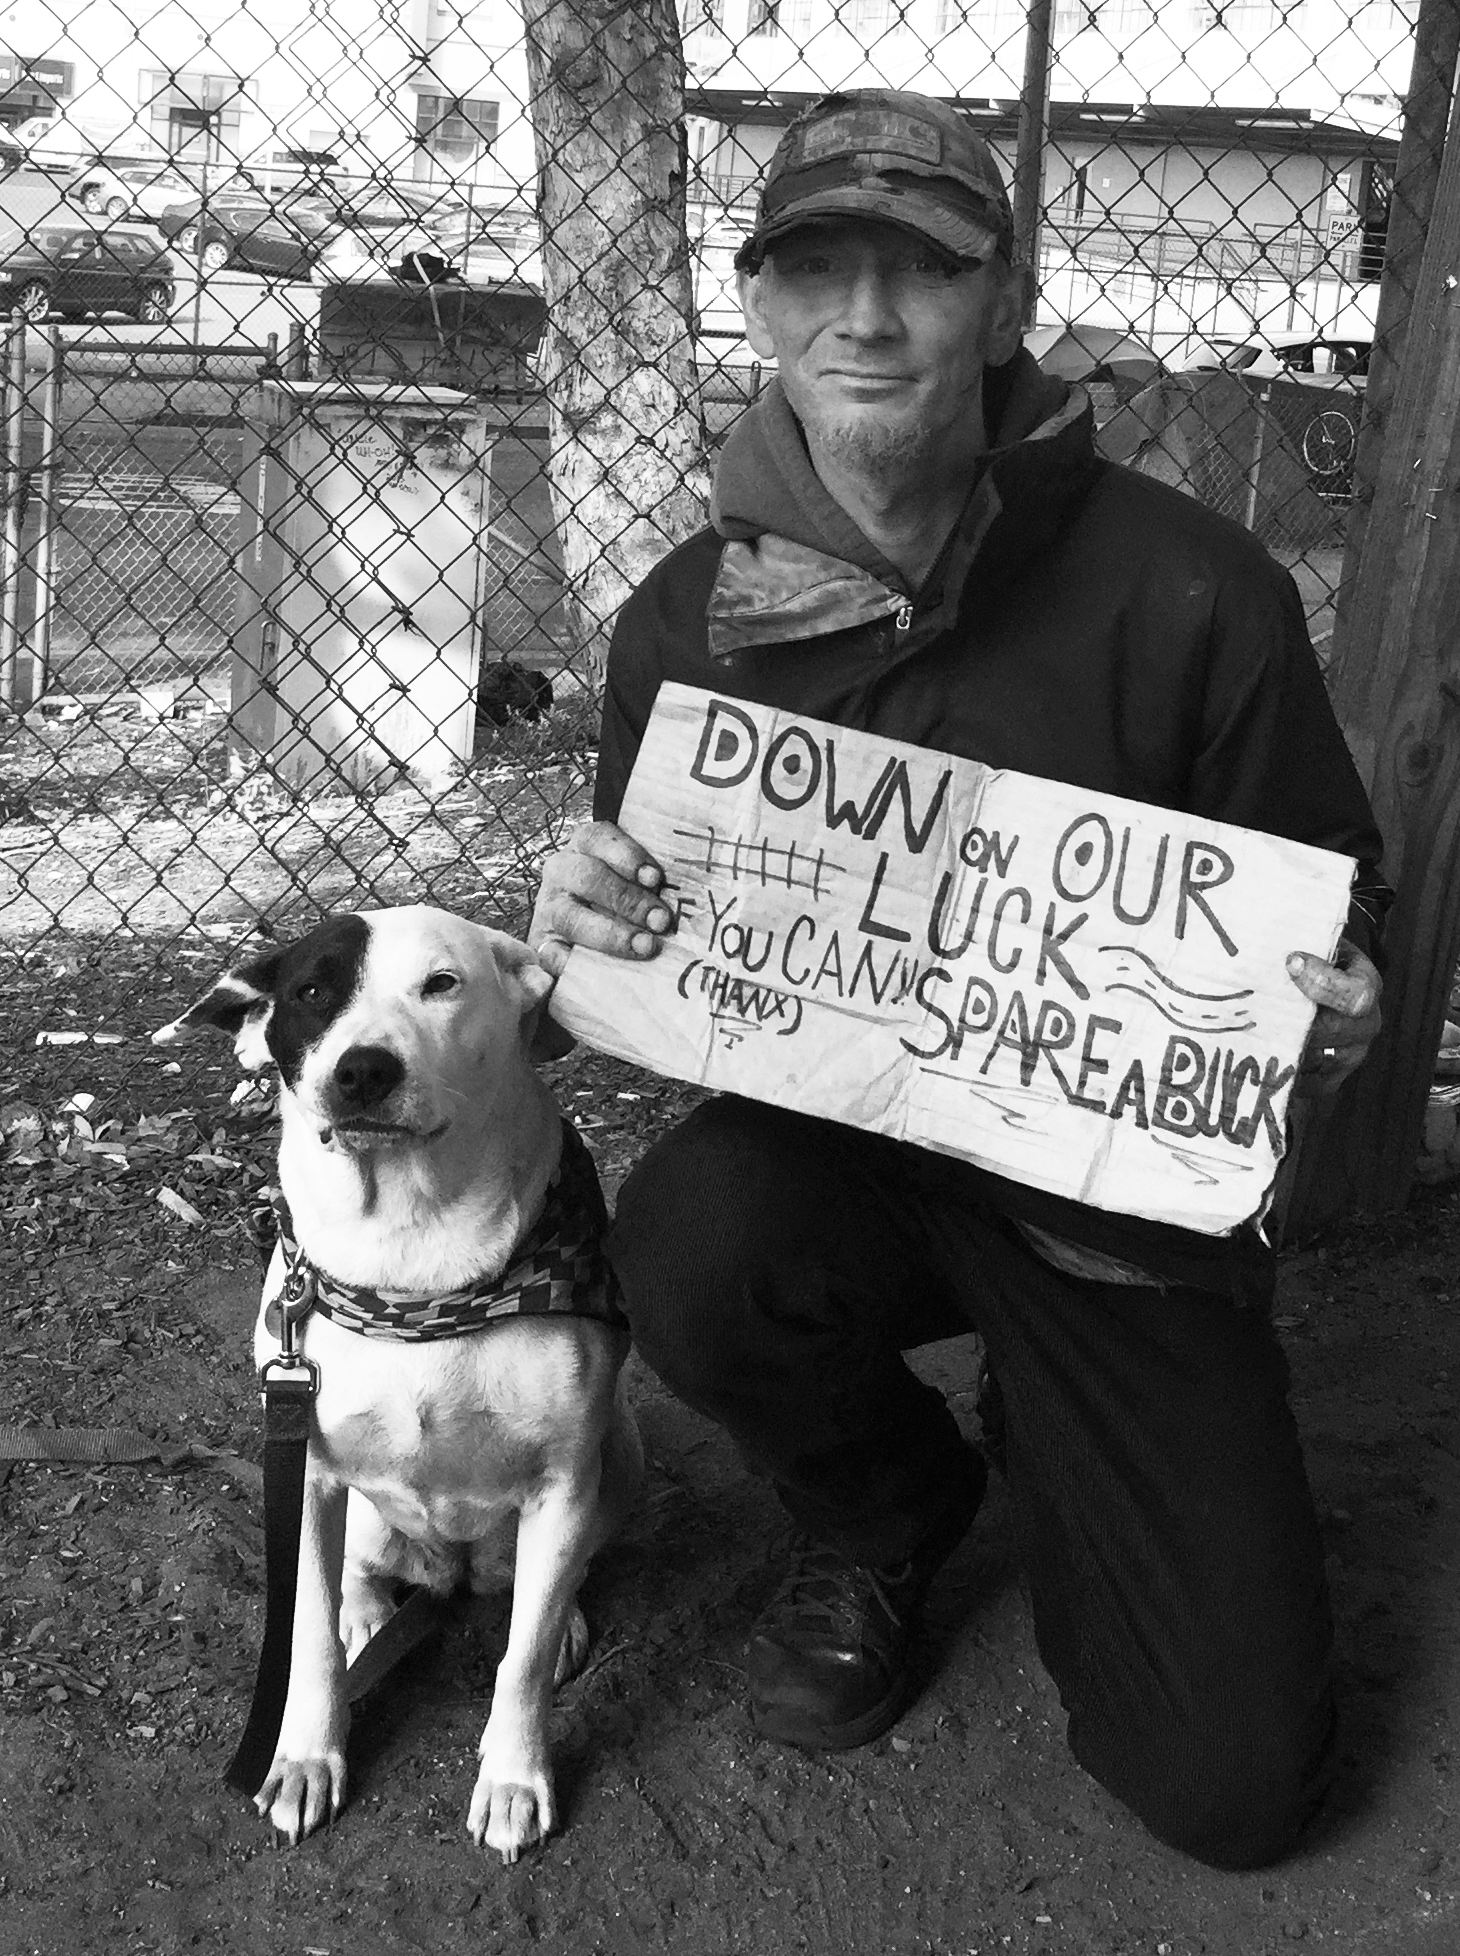 DOWN ON OUR
LUCK
IF YOU CAN!! SPARE A BUCK
(THANX)
PARK